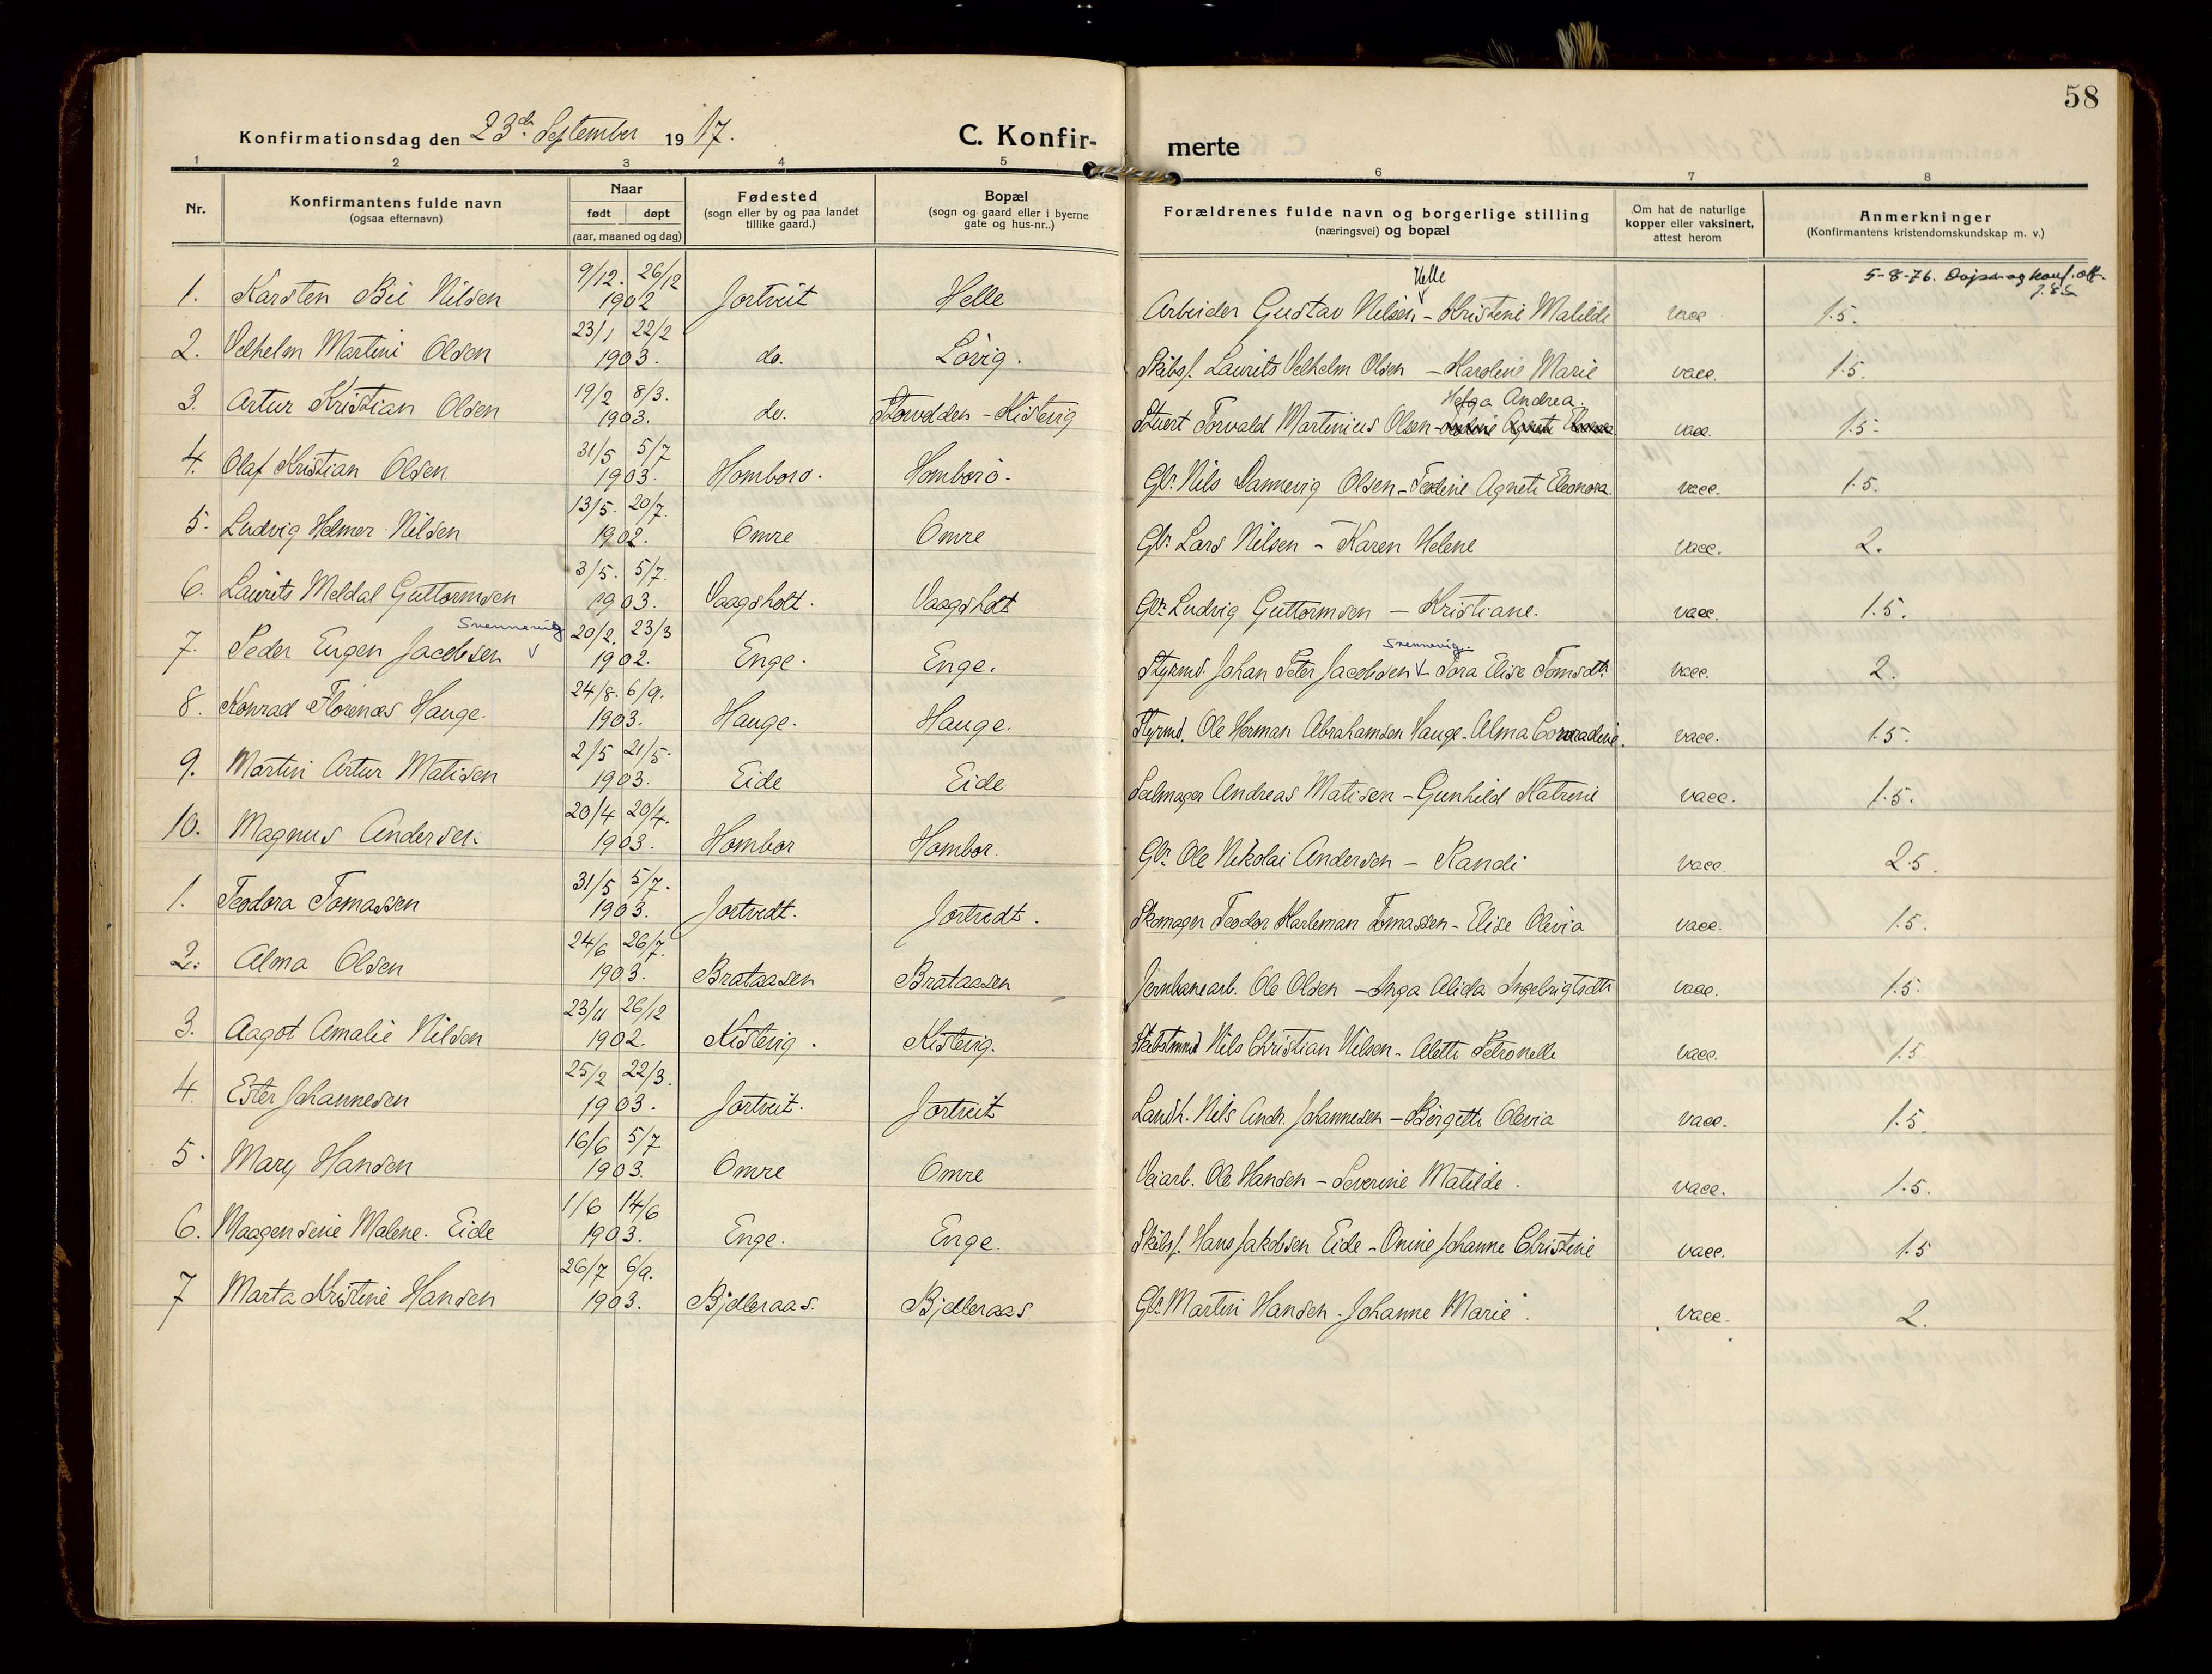 58
Konfirmationsdag den 23de September 1917.
C. Konfirmerte
1 2 3 4 5 6 7 8
Nr. | Konfirmantens fulde navn (ogsaa efternavn) | Naar født | døpt (aar, maaned og dag) | Fødested (sogn eller by og paa landet tillike gaard.) | Bopæl (sogn og gaard eller i byerne gate og hus-nr..) | Forældrenes fulde navn og borgerlige stilling (næringsvei) og bopæl | Om hat de naturlige kopper eller vaksinert, attest herom | Anmerkninger (Konfirmantens kristendomskundskap m. v.)
5-8-76. Daaps- og konf. att.
1. Karsten Bie Nilsen 9/12. 26/12 1902 Jortveit Helle Arbeider Gustav Nilsen Helle - Kristine Matilde vacc 1.5.
2. Velhelm Martini Olsen 23/1 22/2 1903. do. Løvig. Skibsf. Laurits Velhelm Olsen - Karoline Marie vacc. 1.5.
3. Artur Kristian Olsen 19/2 8/3. 1903. do. - Kistevig Stuert Torvald Martinius Olsen - Helga Andrea. vacc. 1.5.
4. Olaf Kristian Olsen 31/5 5/7 1903. Homborø. Homborø. Gbr. Nils Dannevig Olsen - Agnete Eleonora vacc. 1.5.
5. Ludvig Helmer Nilsen 13/5. 20/7. 1902. Omre Omre Gbr. Lars Nilsen - Karen Helene vacc. 2.
6. Laurits Meldal Guttormsen 3/5. 5/7. 1903. Vaagsholt. Vaagsholt Gbr. Ludvig Guttormsen - Kristiane. vacc. 1.5.
7. Peder Eugen Jacobsen Svennevig 20/2. 23/3 1902. Enge. Enge. Styrmd. Johan Peter Jacobsen Svennevig - Tora Elise Tomsdtr. vacc. 2.
8. Konrad Florenæs Hauge. 24/8. 6/9. 1903. Hauge. Hauge. Styrmd. Ole Herman Abrahamsen Hauge. Alma Conradine. vacc. 1.5.
9. Martin Artur Matisen 2/5 21/5. 1903. Eide Eide Seilmager Andreas Matisen - Gunhild Katrine vacc. 1.5.
10. Magnus Andersen. 20/4 20/4. 1903. Hombor Hombor. Gbr. Ole Nikolai Andersen - Randi vacc. 2.5.
1. Teodora Tomassen 31/5 5/7. 1903. Jortvedt. Jortvedt. Skomager Teodor Karleman Tomassen - Elise Olivia vacc. 1.5.
2. Alma Olsen 24/6 26/7. 1903. Brataasen Brataasen Jernbanearb. Ole Olsen - Inga Alida Ingebrigtsdtr vacc. 1.5.
3. Aagot Amalie Nilsen 23/11 26/12 1902. Kistevig. Kistevig. Skibstmmd Nils Christian Nilsen - Alette Petronelle vacc. 1.5
4. Ester Johannesen 25/2 22/3. 1903. Jortveit. Jortveit Landh. Nils Andr. Johannesen - Birgitte Olivia vacc. 1.5.
5. Mary Hansen 16/6 5/7 1903. Omre Omre Veiarb. Ole Hansen - Severine Matilde. vacc. 1.5.
6. Maagensine Malene. Eide 1/6 14/6 1903. Enge. Enge. Skibsf. Hans Jakobsen Eide - Onine Johanne Christine vacc. 1.5
7 Marta Kristine Hansen 26/7 6/9. 1903. Bjelleraas. Bjelleraas. Gbr. Martin Hansen. Johanne Marie. vacc. 2.